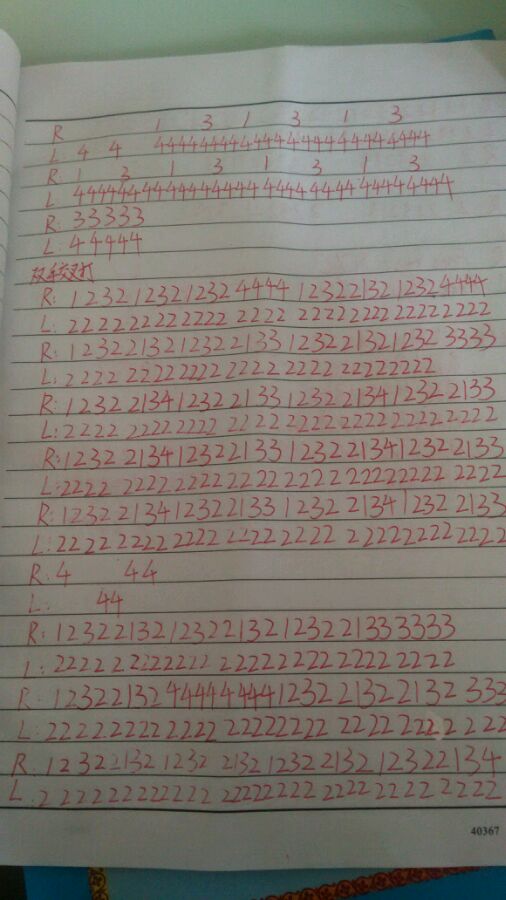 R 1 3 1 3 1 3
L 4 4 444444444444444444444444
R: 1 3 1 3 1 3 1 3
L: 44444444444444444444444444444444
R: 33333
L: 44444
R: 1232 1232 1232 4444 1232 2132 1232 4444
L: 2222 2222 2222 2222 2222 2222 2222 2222
R: 1232 2132 1232 2133 1232 2132 1232 3333
L: 2222 2222 2222 2222 2222 22222222
R: 1232 2134 1232 2133 1232 2134 1232 2133
L: 2222 2222 2222 2222 2222 2222 2222 2222
R: 1232 2134 1232 2133 1232 2134 1232 2133
L: 2222 2222 2222 2222 2222 2222 2222 2222
R: 1232 2134 1232 2133 1232 2134 1232 2133
L: 2222 2222 2222 2222 2222 2222 2222 2222
R: 4 44
L: 44
R: 1232 2132 1232 2132 1232 2133 3333
L: 2222 2222 2222 2222 2222 2222 2222
R: 1232 2132 4444 4444 1232 2132 2132 333
L: 2222 2222 2222 2222 2222 2222 2222 2222
R: 1232 2132 1232 2132 1232 2132 1232 2134
L: 2222 2222 2222 2222 2222 2222 2222 2222
40367